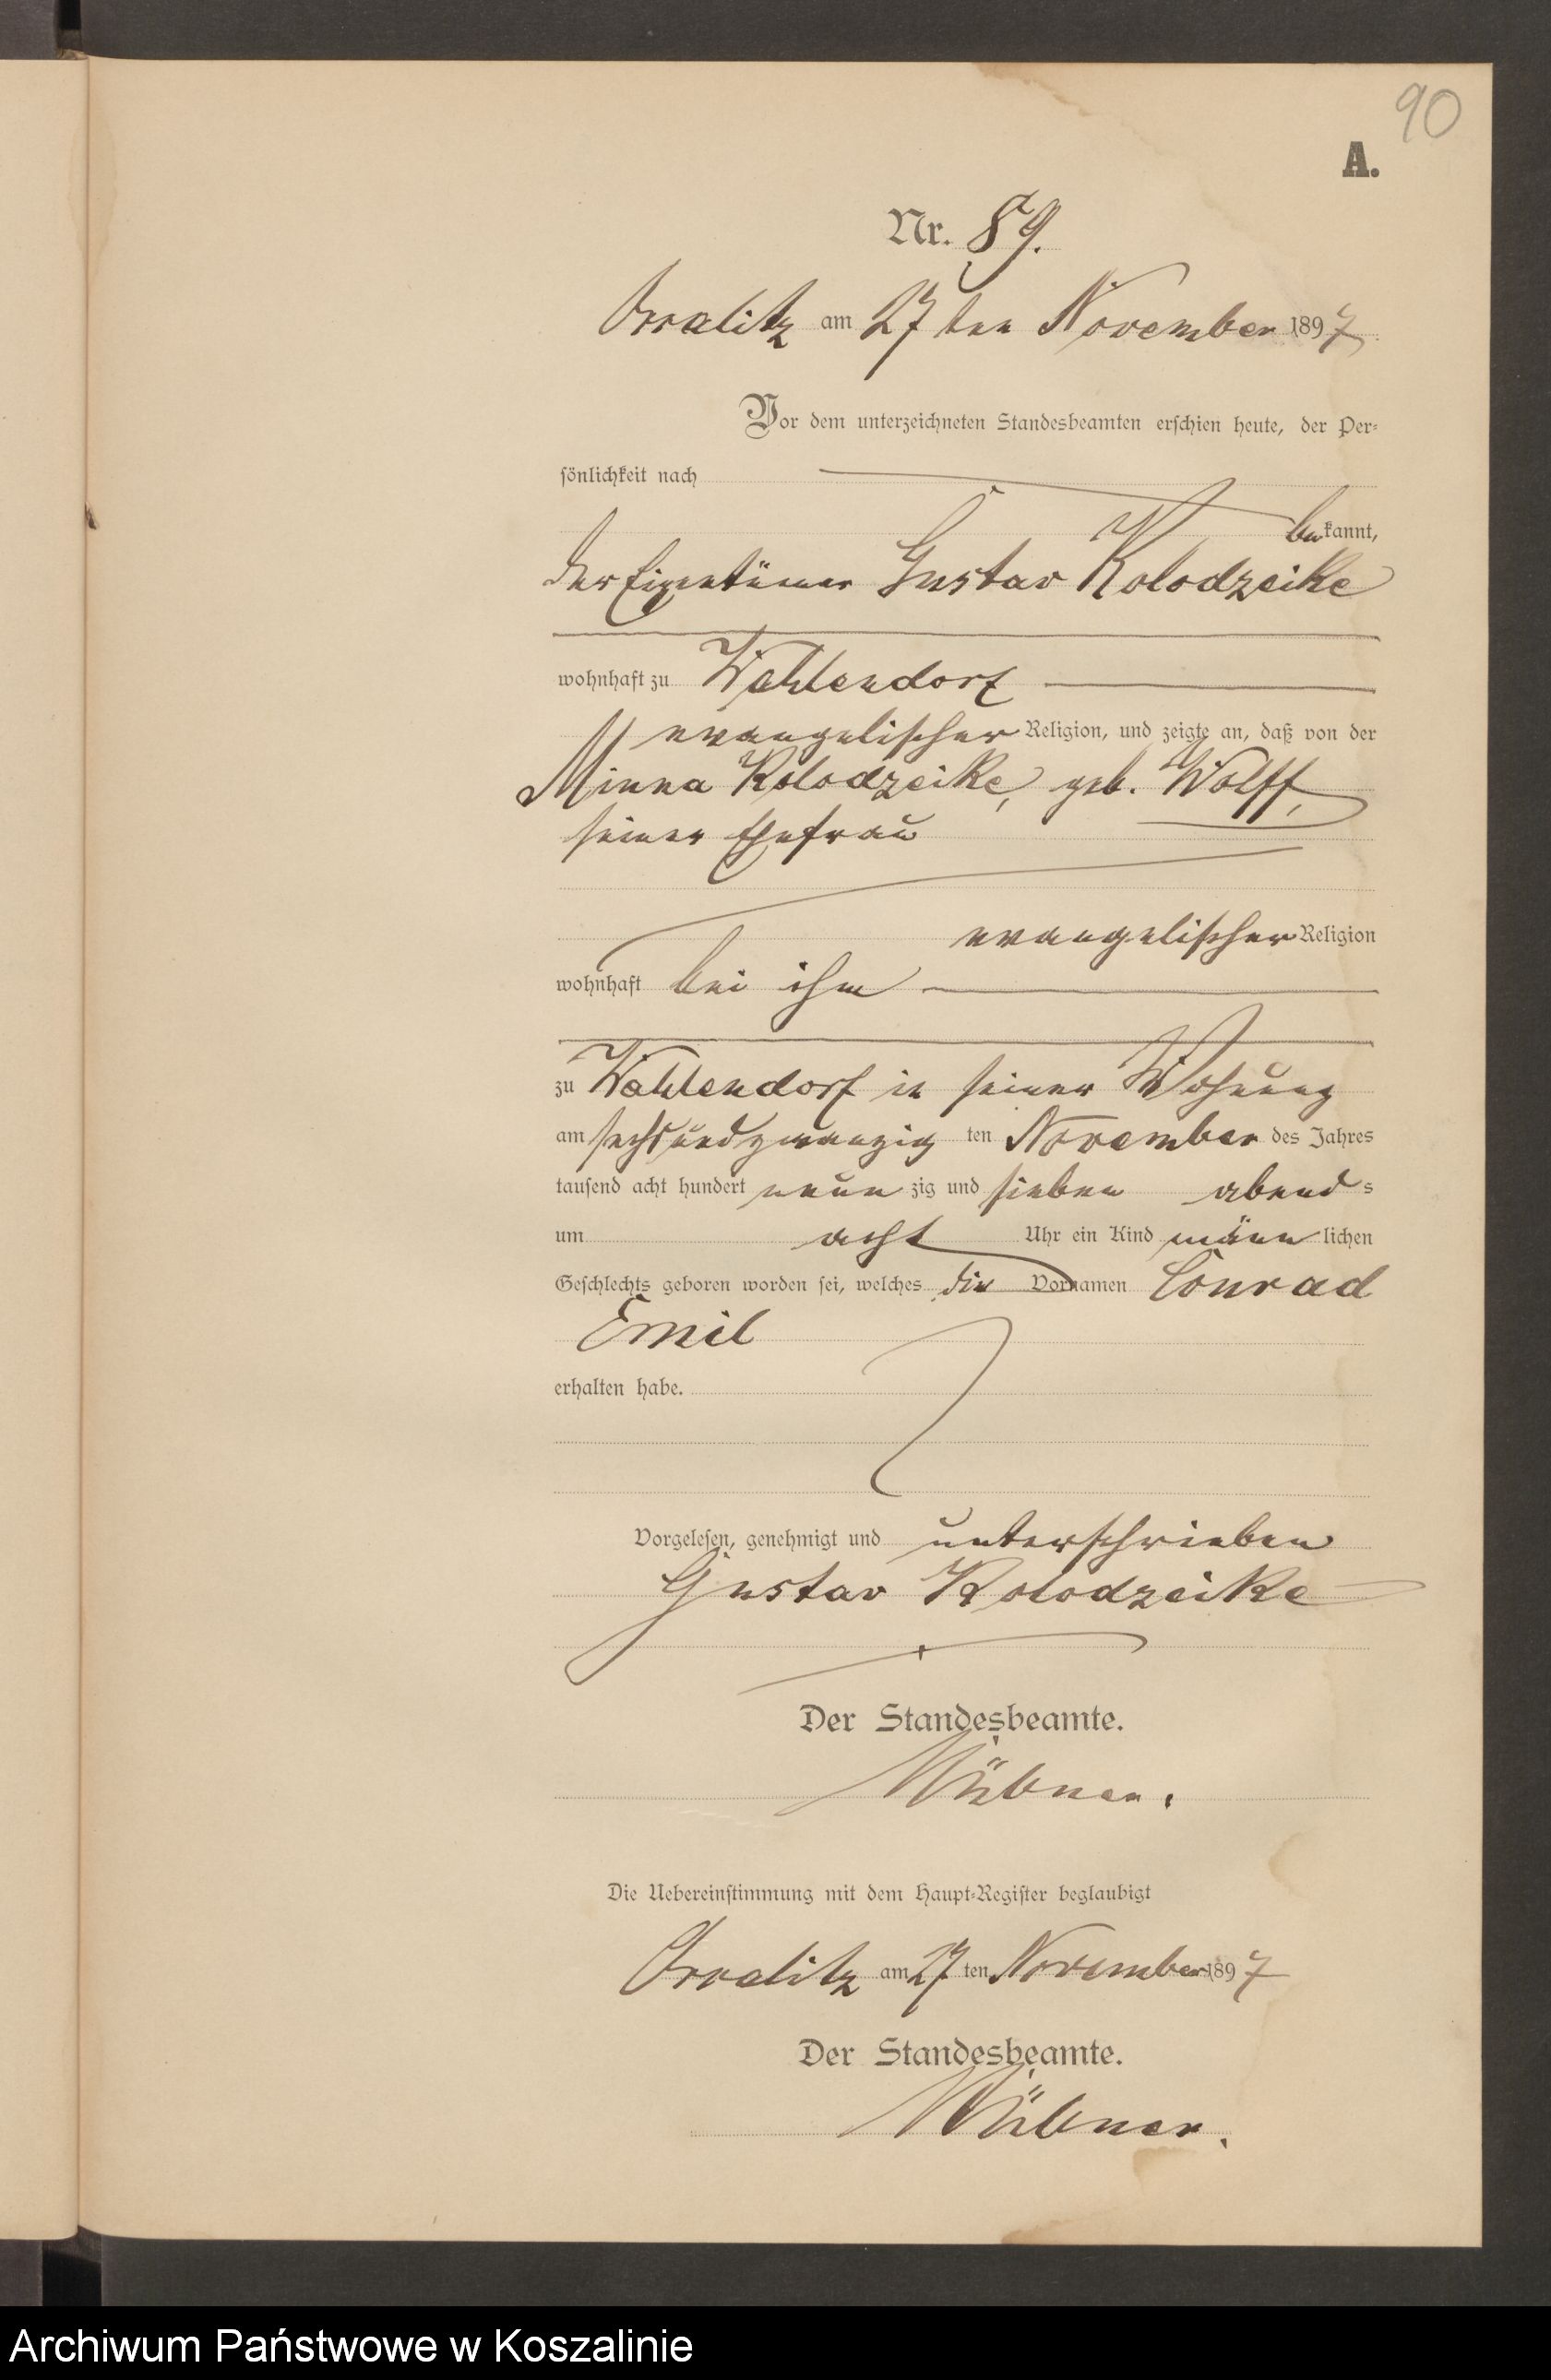 90
A.
Nr. 89.
Orralitz am 27 ten November 1897
Vor dem unterzeichneten Standesbeamten erschien heute, der Per-
sönlichkeit nach
bekannt,
der Eigentümer Gustav Kolodzeike
wohnhaft zu Wahlendorf
evangelischer Religion, und zeigte an, daß von der
Minna Kolodzeike, geb. Wolff,
seiner Ehefrau
evangelischer Religion
wohnhaft bei ihm
zu Wahlendorf in seiner Wohnung
am sechsundzwanzig ten November des Jahres
tausend acht hundert neun zig und sieben abend s
um acht Uhr ein Kind männ lichen
Geschlechts geboren worden sei, welches die Vornamen Conrad
Emil
erhalten habe.
Vorgelesen, genehmigt und unterschrieben
Gustav Kolodzeike
Der Standesbeamte.
Die Uebereinstimmung mit dem Haupt-Register beglaubigt
Orralitz am 27 ten November 1897
Der Standesbeamte.
Archiwum Państwowe w Koszalinie